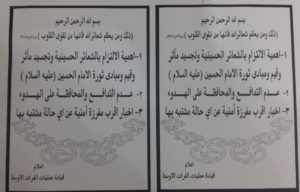 بسم الله الرحمن الرحيم
(ذلك ومن يعظم شعائر الله فانها من تقوى القلوب)
١-اهمية الالتزام بالشعائر الحسينية وتجسيد مآثر
وقيم ومبادئ ثورة الامام الحسين (عليه السلام )
٢- عدم التدافع والمحافظة على الهدوء
٣- اخبار اقرب مفرزة أمنية عن اي حالة مشتبه بها
اعلام
قيادة عمليات الفرات الاوسط
بسم الله الرحمن الرحيم
(ذلك ومن يعظم شعائر الله فانها من تقوى القلوب)
١-اهمية الالتزام بالشعائر الحسينية وتجسيد مآثر
وقيم ومبادئ ثورة الامام الحسين (عليه السلام )
٢- عدم التدافع والمحافظة على الهدوء
٣- اخبار اقرب مفرزة أمنية عن اي حالة مشتبه بها
اعلام
قيادة عمليات الفرات الاوسط